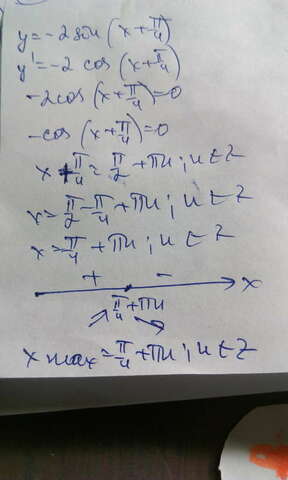 y=-2sin(x+π/4)
y'=-2 cos(x+π/4)
-2cos(x+π/4)=0
-cos(x+π/4)=0
x+π/4=π/2+πn; n∈Z
x=π/2-π/4+πn; n∈Z
x=π/4+πn; n∈Z
+ -
x
π/4+πn
x max=π/4+πn; n∈Z